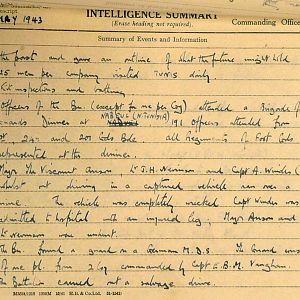 INTELLIGENCE SUMMARY
MAY 1943
(Erase heading not required).
Commanding Offic
Summary of Events and Information
the past and gave an outline of what the future might hold
25 men per company visited TUNIS daily
Kit inspections and bathing
Officers of the Bn (except for one per Coy) attended a Brigade of
Guards Dinner at NABEUL (N. TUNISIA) 190 Officers attended from
1st, 24th and 201 Gds Bde all Regiments of Foot Gds
represented at this dinner.
Major The Viscount Anson Lt J.H. Nevinson and Capt A. Winder
whilst out driving in a captured vehicle ran over a
mine. The vehicle was completely wrecked Capt Winder was
admitted to hospital with an injured leg, Major Anson and
Lt Nevinson were unhurt.
The Bn. found a guard on a German M.D.S. The Guard was
of one pl. from 2 Coy commanded by Capt G.B.M. Vaughan.
The Battalion carried out a salvage drive.